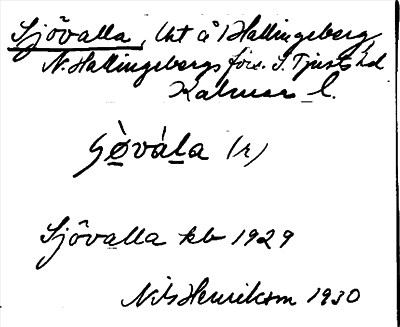 Sjövalla, lht å Hallingeberg,
N. Hallingebergs förs. S. Tjusts hd
Kalmar l.
sø̀vála (r)
Sjövalla kb 1929
Nils Henrikson 1930